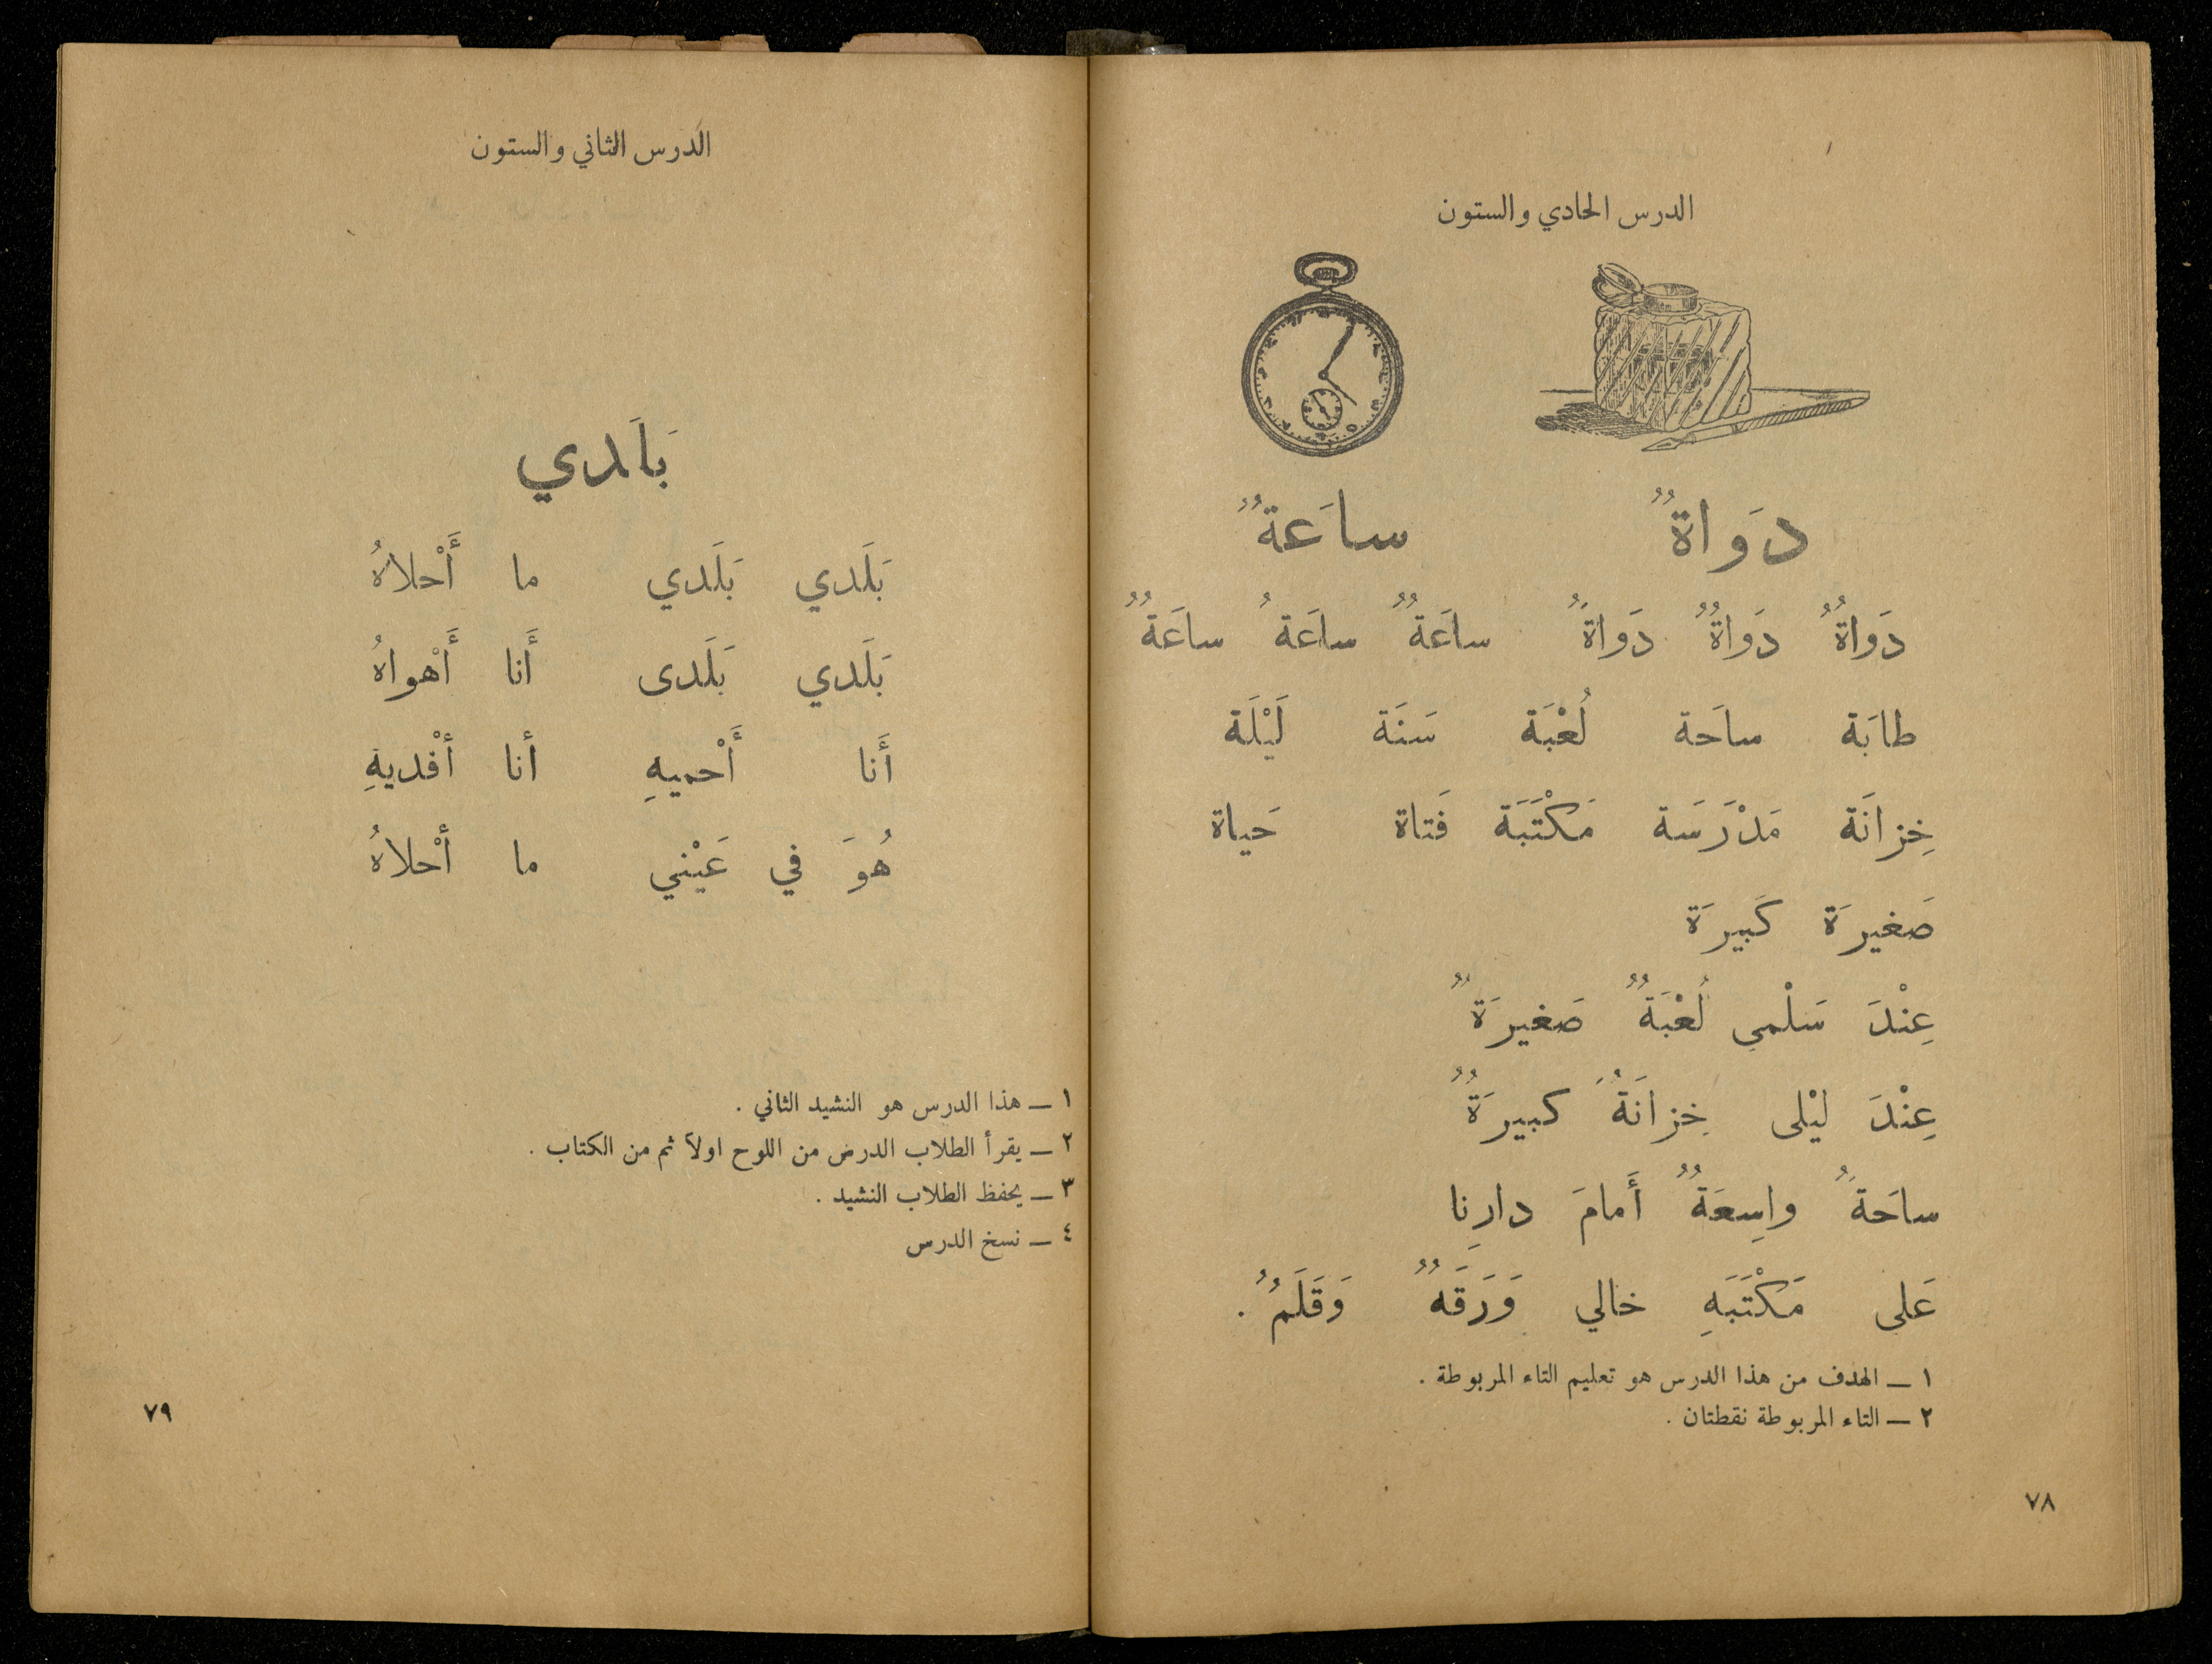 الدرس الحادي والستون
دَواةٌ ساعَةٌ
دَواةٌ دَواةٌ دَواةٌ ساعَةٌ ساعَةُ ساعَةٌ
طابَة ساحَة لُعْبَة سَنَة لَيْلَة
خِزانَة مَدْرَسَة مَكْتَبَة فَتاة حَياة
صَغيرَة كَبيرَة
عِنْدَ سَلْمى لُعْبَةٌ صَغيرَةٌ
عِنْدَ ليْلى خِزانَةٌ كبيرَةٌ
ساحَةٌ واسِعَةٌ أَمامَ دارِنا
عَلى مَكْتَبَهِ خالي وَرَقَهٌ وَقَلَمٌ .
١ ــ الهدف من هذا الدرس هو تعليم التاء المربوطة .
٢ ــ التاء المربوطة نقطتان .
٧٨
الدرس الثاني والستون
بَلَدي
بَلَدي بَلَدي ما أَحْلاهُ
بَلَدي بَلَدى أَنا أَهْواهُ
أَنا أَحْميهِ أنا أفْديهِ
هُوَ في عَيْني ما أحْلاهُ
١ ــ هذا الدرس هو النشيد الثاني .
٢ ــ يقرأ الطلاب الدرس من اللوح اولاً ثم من الكتاب .
٣ ــ يحفظ الطلاب النشيد .
٤ ــ نسخ الدرس
٧٩